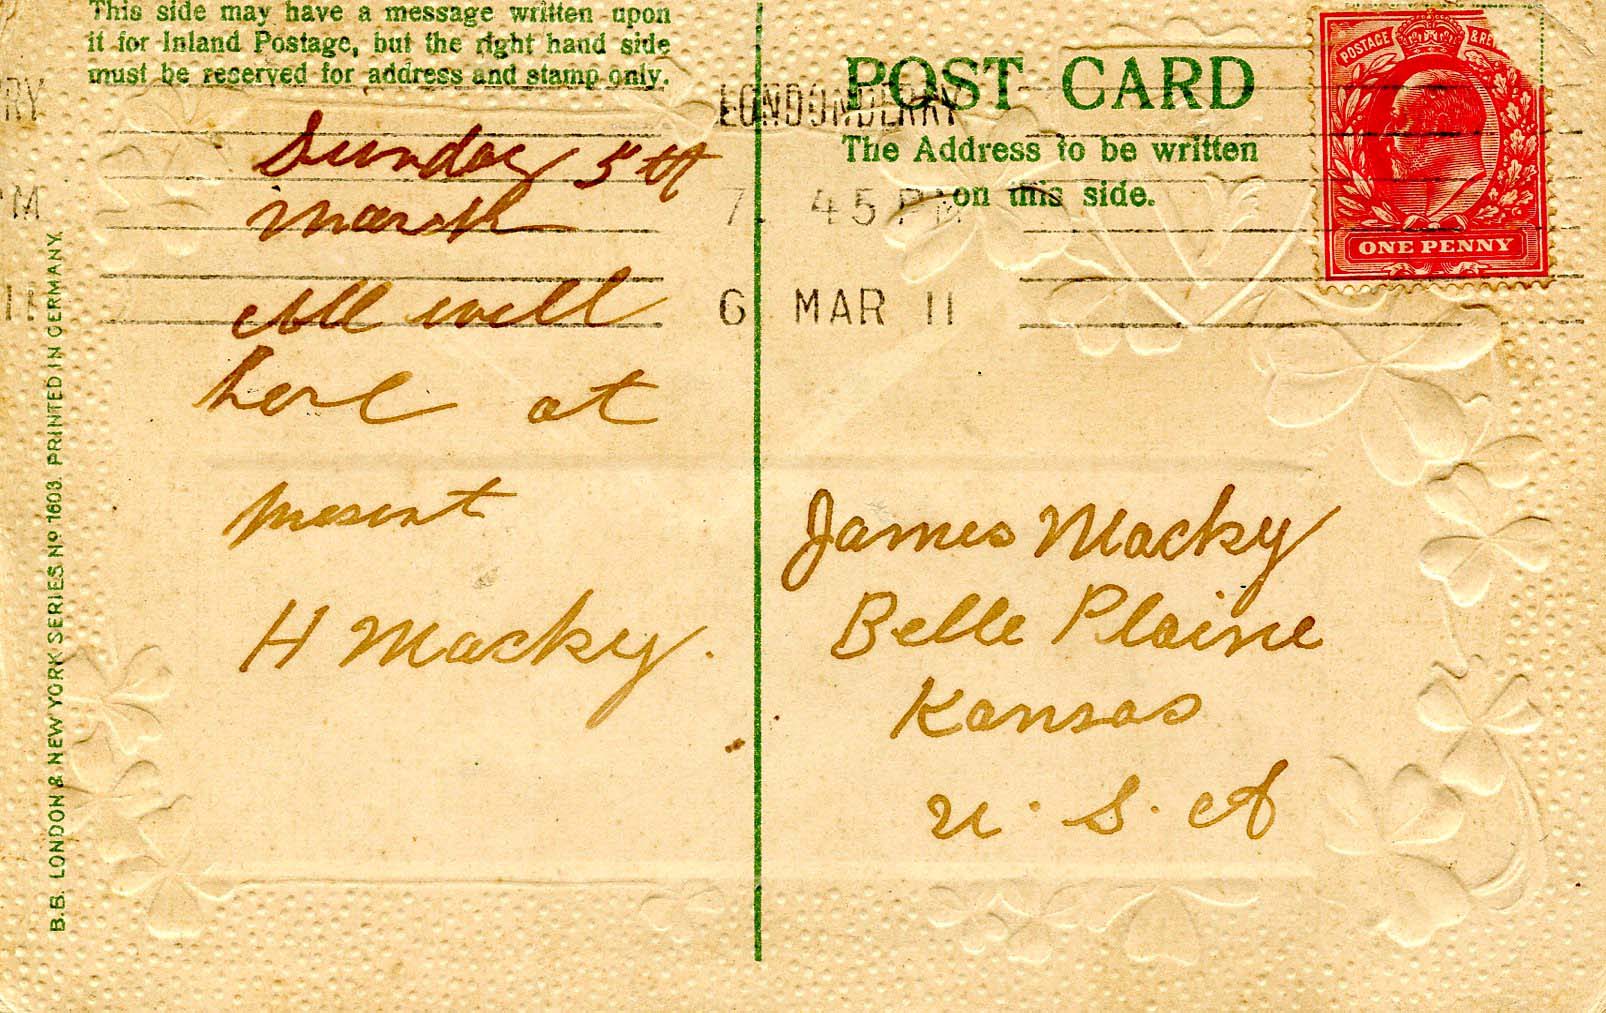 This side may have a message written upon
it for Inland Postage, but the right hand side
must be reserved for address and stamp only.
Sunday 5th
March
All well
here at
present
H Macky.
B.B. LONDON & NEW YORK SERIES No 1603. PRINTED IN GERMANY.
RY
PM
11
LONDONDERRY
7. 45 PM
6 MAR 11
POST CARD
The Address to be written
on this side.
POSTAGE & RE
ONE PENNY
James Macky
Belle Plaine
Kansas
U. S. A